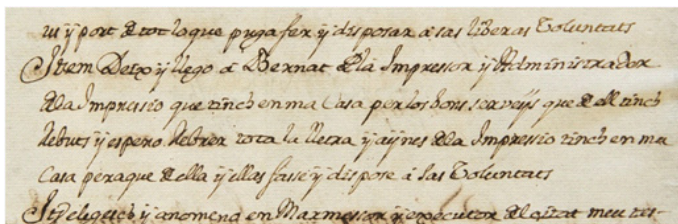 y port de tot lo que puga fer y disposar á sas liberas Voluntats
Item Deixo y llego á Bernat Pla Impressor y Administrador
de la Impressio que tinch en ma Casa per los bons serveÿs que de ell tinch
rebuts y espero rebrer tota la lletra y aÿnes de la Impressio tinch en ma
Casa peraque de ella y ellas fasse y dispose á sas Voluntats
Item elegesch y anomeno en Marmessor y executor de aquest meu tes-